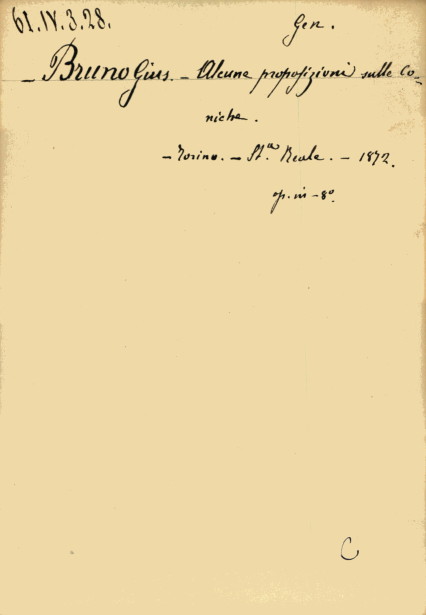 61.IV.3.28.
Gen.
- Bruno Gius. - Alcune proposizioni sulle Co-
niche.
- Torino. - St.ª Reale. - 1872.
op. in-8º.
C